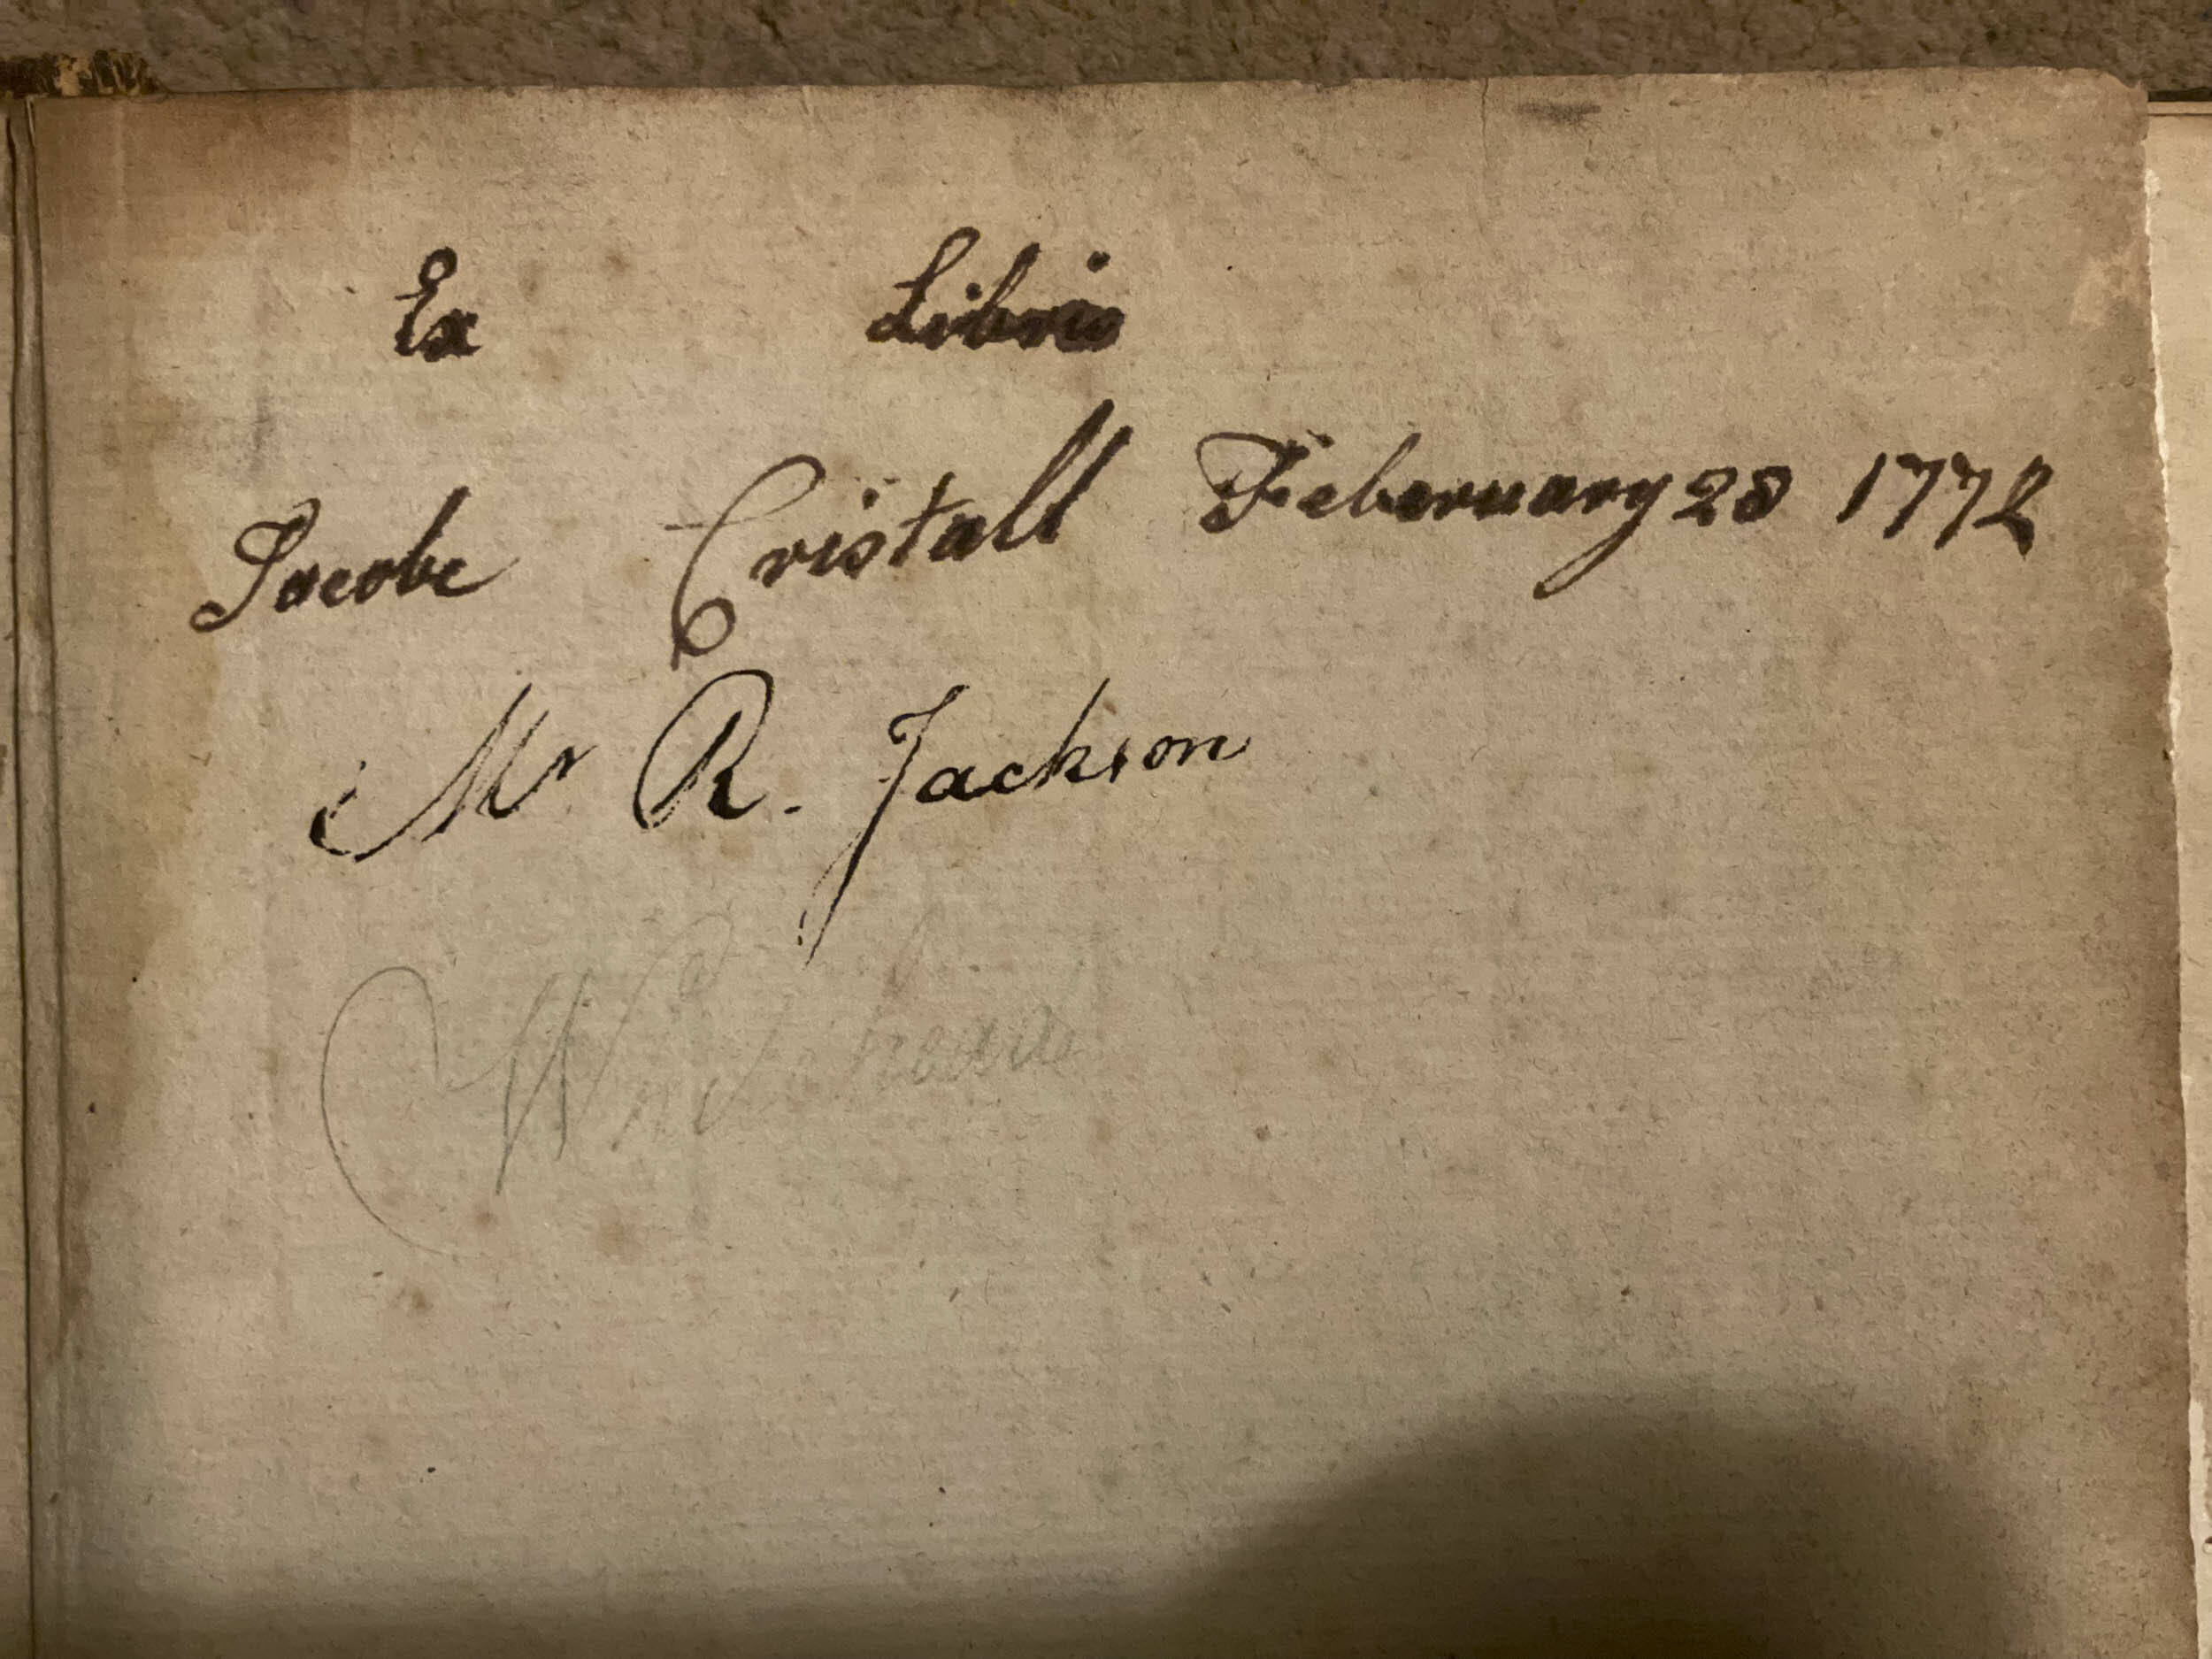 Ex Libris
Jacobe Cristall Feberuary 28 1772
Mr R. Jackson